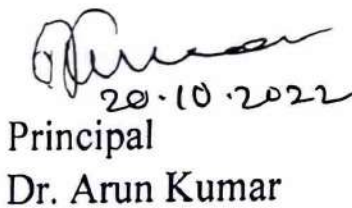 20.10.2022
Principal
Dr. Arun Kumar